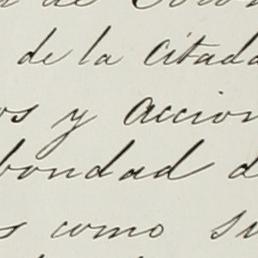 de la citada
os y accion
bondad d
s como su